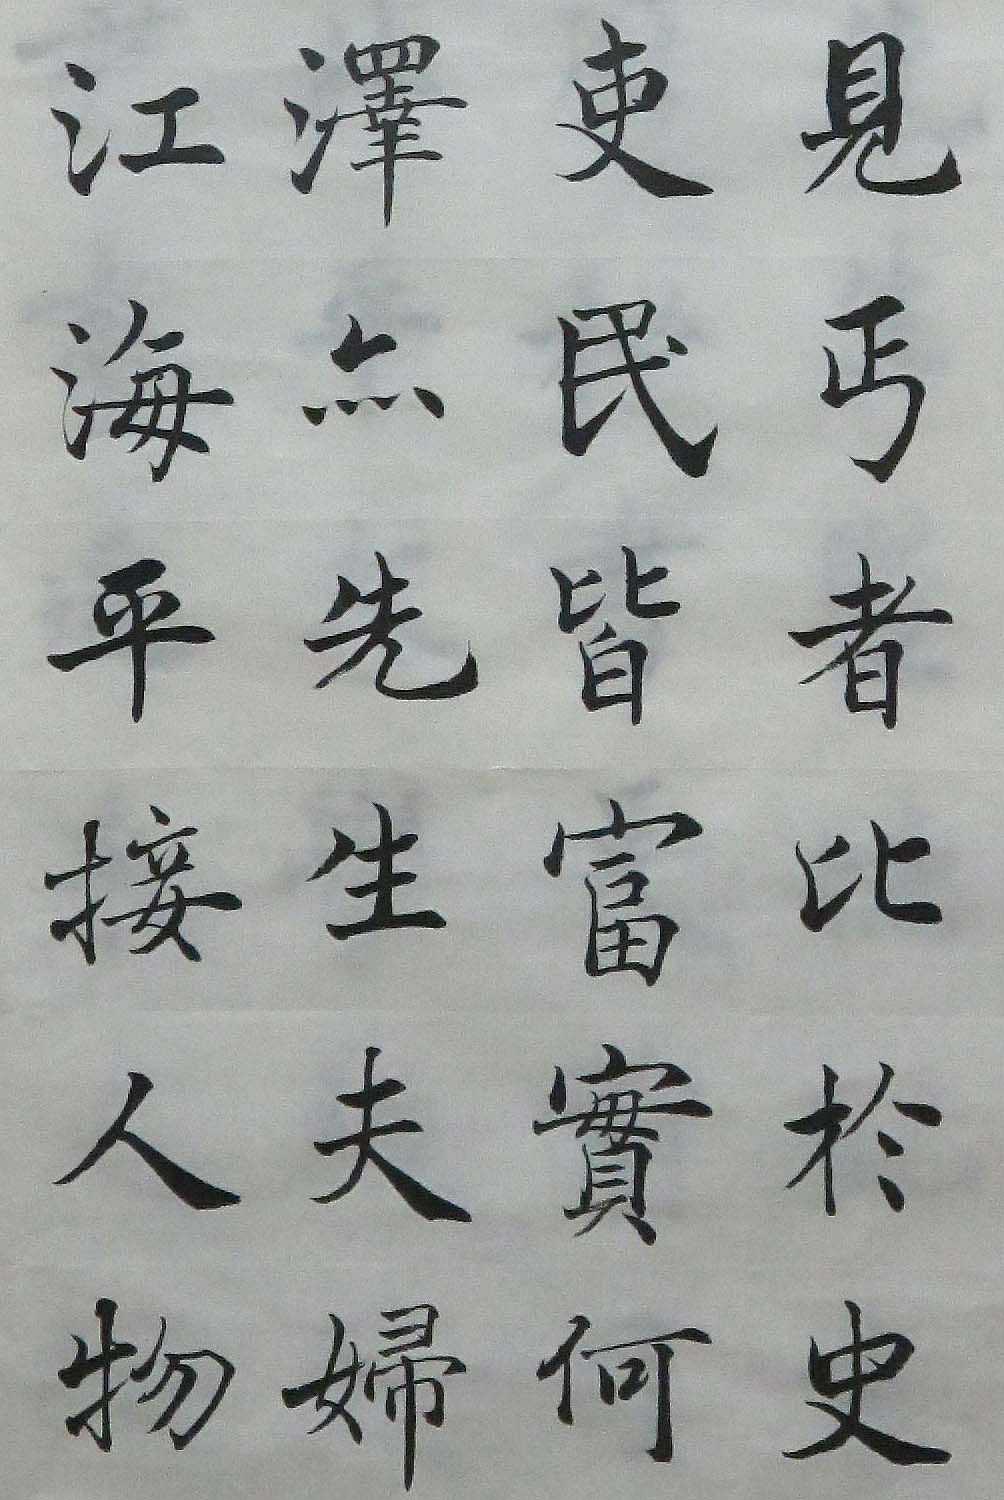 見丐者比於史
吏民皆富實何
澤亦先生夫婦
江海平接人物